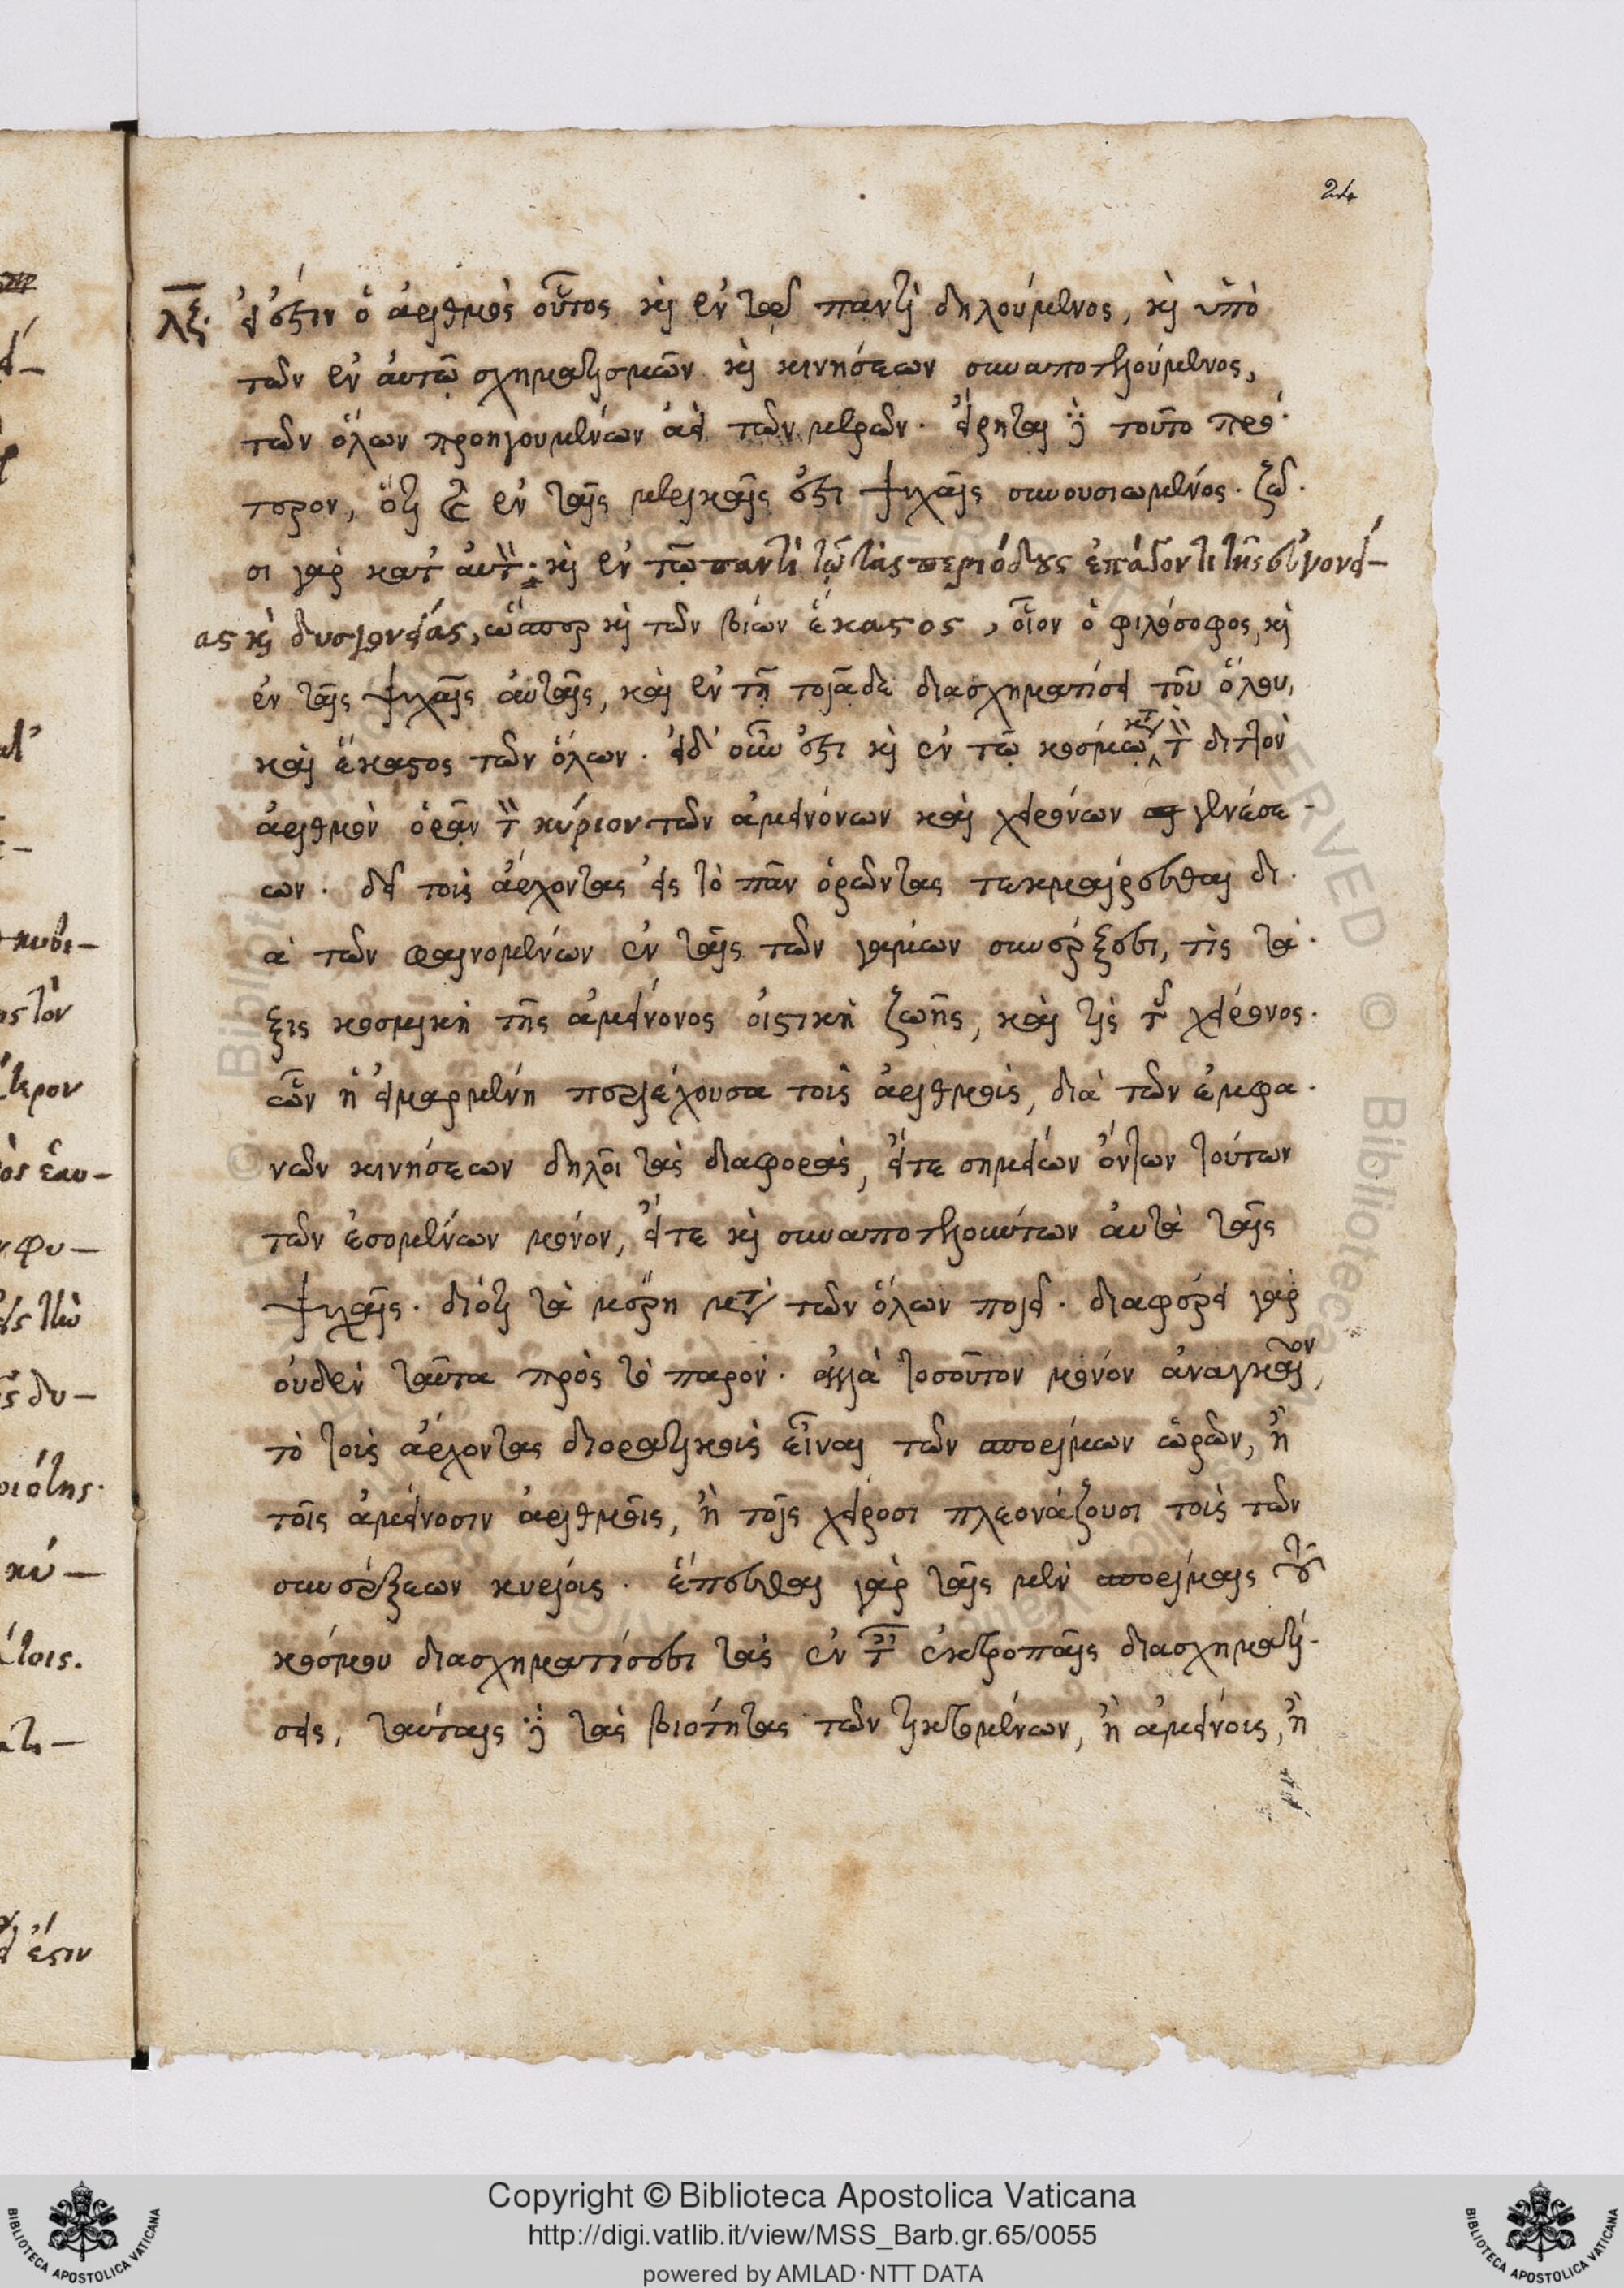 24
λξ. εἰ ἐστιν ὁ ἀριθμὸς οὗτος καὶ ἐν τῷ παντὶ δηλούμενος, καὶ ὑπὸ
τῶν ἐν αὐτῷ σχηματισμῶν καὶ κινήσεων συναποτελούμενος,
τῶν ὅλων προηγουμένων ἀεὶ τῶν μερῶν. εἴρηται δὲ τοῦτο πρό-
τερον, ὅτι καὶ ἐν ταῖς μερικαῖς ἐστι ψυχαῖς συνουσιωμένος. ζῶ-
σι γὰρ κατ' αὐτὸν· καὶ ἐν τῷ παντὶ τῷ τὰς περιόδους ἐπάγοντι τῆς εὐγονεί-
ας καὶ δυσγονείας, ὥσπερ καὶ τῶν βίων ἕκαστος, οἷον ὁ φιλόσοφος, καὶ
ἐν ταῖς ψυχαῖς αὐταῖς, καὶ ἐν τῇ τοιᾷδε διασχηματίσει τοῦ ὅλου,
καὶ ἕκαστος τῶν ὅλων. εἰ δ' οὖν ἐστι καὶ ἐν τῷ κόσμῳ κατὰ τὸν διττὸν
ἀριθμὸν ὁρᾶν τὸν κύριον τῶν ἀμεινόνων καὶ χειρόνων γενέσε-
ων. δεῖ τοὺς ἄρχοντας εἰς τὸ πᾶν ὁρῶντας τεκμαίρεσθαι δι-
ὰ τῶν φαινομένων ἐν ταῖς τῶν γάμων συνέρξεσι, τίς τά-
ξις κοσμικὴ τῆς ἀμείνονος οἰστικὴ ζωῆς, καὶ τίς τῆς χείρονος.
ὧν ἡ εἱμαρμένη περιέχουσα τοὺς ἀριθμοὺς, διὰ τῶν ἐμφα-
νῶν κινήσεων δηλοῖ τὰς διαφορὰς, εἴτε σημείων ὄντων τούτων
τῶν ἐσομένων μόνον, εἴτε καὶ συναποτελούντων αὐτὰ ταῖς
ψυχαῖς. διότι τὰ μέρη μετὰ τῶν ὅλων ποιεῖ. διαφέρει γὰρ
οὐδὲν ταῦτα πρὸς τὸ παρόν. ἀλλὰ τοσοῦτον μόνον ἀναγκαῖον,
τὸ τοὺς ἄρχοντας διορατικοὺς εἶναι τῶν σπορίμων ὡρῶν, ἢ
τοῖς ἀμείνοσιν ἀριθμοῖς, ἢ τοῖς χείροσι πλεονάζουσι τοῖς τῶν
συνέρξεων κυρίοις. ἕπεσθαι γὰρ ταῖς μὲν σπορίμαις τοῦ
κόσμου διασχηματίσεσι τὰς ἐν ταῖς ἐκτροπαῖς διασχηματί-
σεις, ταύταις δὲ τὰς βιότητας τῶν τικτομένων, ἢ ἀμείνοις, ἢ
Copyright © Biblioteca Apostolica Vaticana
http://digi.vatlib.it/view/MSS_Barb.gr.65/0055
powered by AMLAD·NTT DATA
BIBLIOTECA APOSTOLICA VATICANA
BIBLIOTECA APOSTOLICA VATICANA